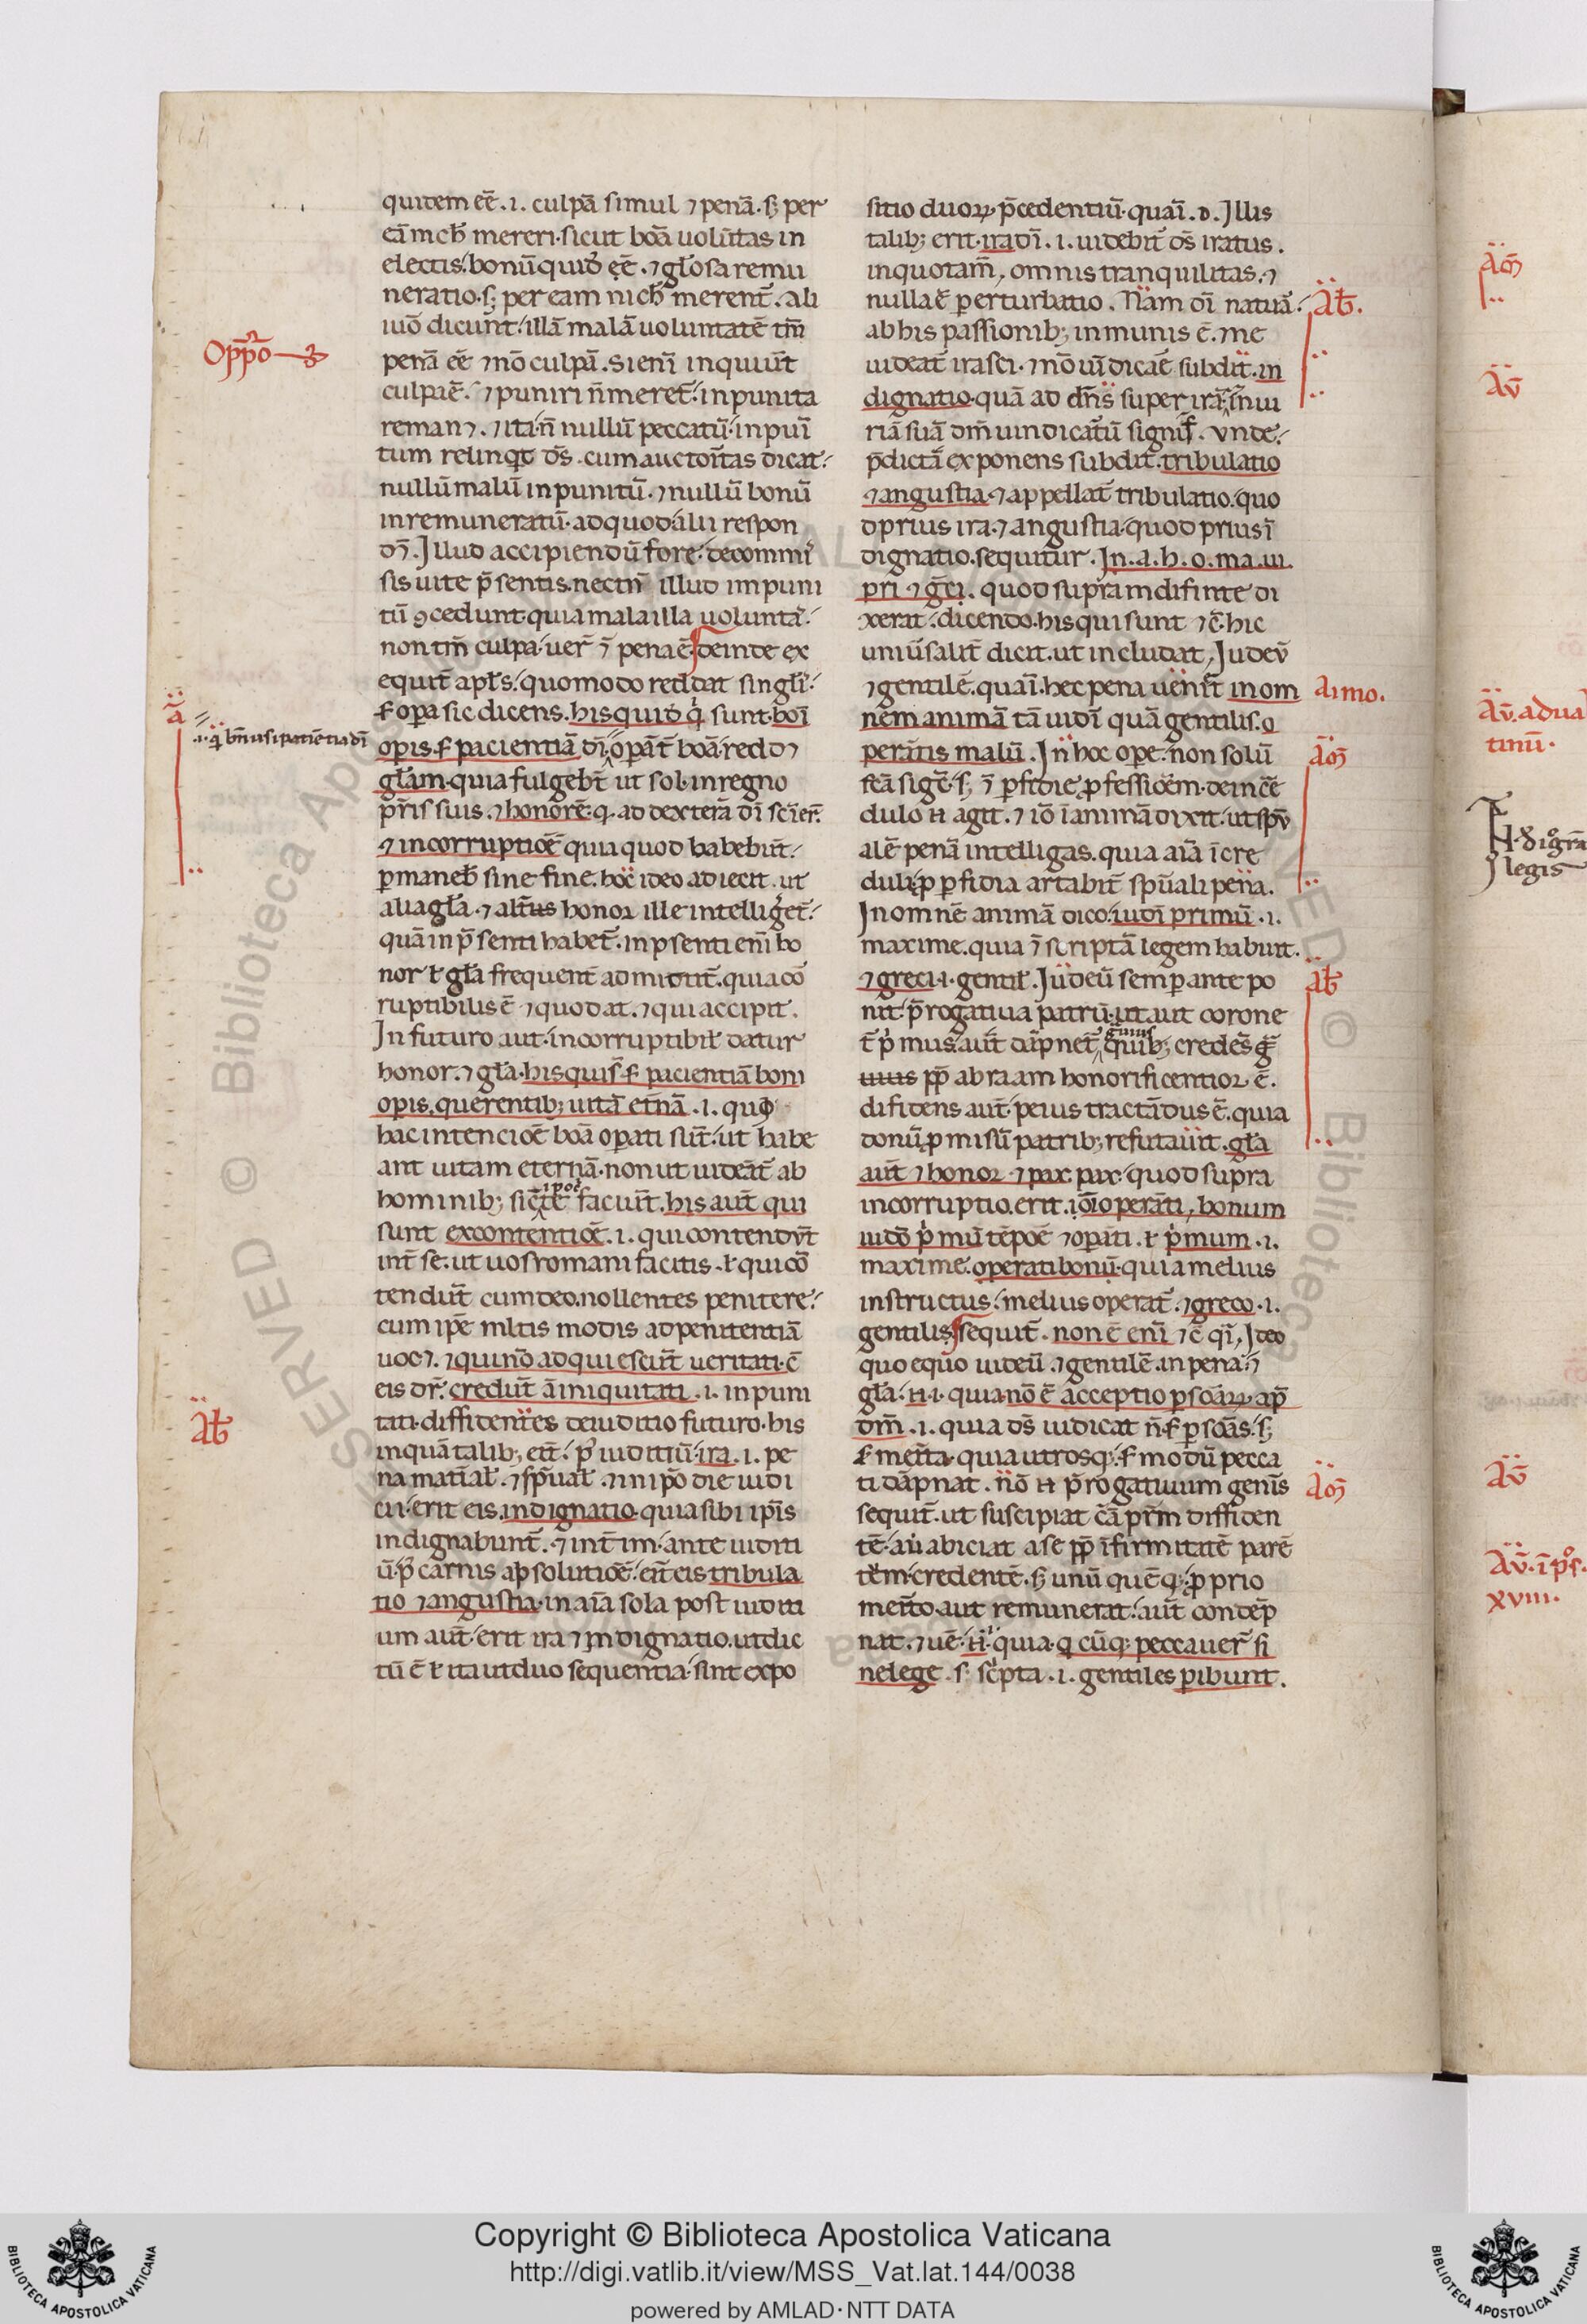 quidem eē .i. culpā simul ⁊ penā. sꝫ per
eā nich̄ mereri. sicut bōa uolūtas in
electis. bonū quidē eē. ⁊ glōsa remu
neratio. sꝫ per eam nich̄ merent̄. Ali
Oppō
iuō dicunt. illā malā uoluntatē tm̄
penā eē ⁊ nō culpā. Si eni inquiūt
culpa ē. ⁊ puniri n̄ meret̄. inpunita
reman⁊. ⁊ ita n̄ nullū peccatū inpuī
tum relinqt ds̄. cum auctoritas dicat.
nullū malū inpunitū. ⁊ nullū bonū
inremuneratū. ad quod alii respon
d⁊. Illud accipiendū fore. de commi
sis uite p̄sentis. nec tn̄ illud impuni
tū ꝯcedunt. quia mala illa uolunta.
non tm̄ culpa. uer̄ ⁊ pena ē. deinde ex
equit̄ apl̄s. quomodo reddat singli.
opera sic dicens. his quidē q̇ sunt. boī
.i. q̇ bn̄ usi patiētia dī
opis. pacientiā dī. opāt̄ boā. redd⁊
gl̄am. quia fulgebt̄ ut sol. in regno
pr̄is sui. ⁊ honorē. q. ad dexterā dī
⁊ incorruptiōē quia quod habebūt.
ꝑmaneb̄ sine fine. hoc ideo adiecit. ut
alia gl̄a. ⁊ alt̄ius honor ille intelliget̄.
quā in p̄senti habet̄. in p̄senti eni ho
nor ł gl̄a frequent̄ admittit̄. quia cō
ruptibilis ē ⁊ quod dat. ⁊ qui accipit.
In futuro aut. incorruptibilr̄ datur
honor. ⁊ gl̄a. his quis pacientiā boni
opis. querentibꝫ uitā etnā .i. qui
hac intenciōē boā opati sūt. ut habe
ant uitam eternā. non ut uideāt̄ ab
hominibꝫ sic facīūt. his aūt qui
sunt ex contentiōē .i. qui contendūt
int̄ se. ut uos romani facitis. ł qui cō
tendūt cum deo. nollentes penitere.
cum ipē mltis modis ad penitentiā
uoc⁊. ⁊ qui nō adquiescūt ueritati. ē
eis dr̄. credūt ā iniquitati .i. inpuni
Ab̄
tati. diffidentes de iuditio futuro. his
inquā talibꝫ. erit. p iuditiū. ira .i. pe
na matial̄. ⁊ spūal̄. in ipō die iudi
cii. erit eis. indignatio. quia sibi ipīs
indignabunt̄. ⁊ int̄im. ante iuditi
ū. p carnis apsolutiōē. erit eis tribula
tio ⁊ angustia. in aīa sola post iuditi
um aūt. erit ira ⁊ indignatio. ut dic
tū ē ł ita ut duo sequentia. sint expo
sitio duoꝝ p̄cedentiū. quaī. d. Illis
talibꝫ erit. ira dī .i. uidebit̄ ds̄ iratus.
in quo tam̄, omnis tranquilitas. ⁊
nulla ē perturbatio. Nam oī natuā.
Ab̄.
ab his passionibꝫ inmunis ē. ne
uideat̄ irasci. ⁊ nō uīdicāe subdit. in
dignatio. quā ad dn̄s super irā. iniu
riā suā om̄ uindicatū signif. vnde.
p̄dictā exponens subdit. tribulatio
⁊ angustia. ⁊ appellat̄ tribulatio. quo
d prius ira. ⁊ angustia. quod prius ī
dignatio. sequitur. In .a. h. o. ma. iu.
pri ⁊ g̅ci. quod supra indifinite di
xerat. dicendo. his qui sunt ⁊c̄. hic
uniūsalit̄ dicit. ut includat, Iudeū
⁊ gentilē. quaī. hec pena uenit̄ in om
Aimo.
nem animā tā iudī quā gentilis. o
perātis malū. In hoc ope. non solū
Am̄
dulo agit. ⁊ iō ī animā dixit. ut spū
alē penā intelligas. quia aīa īcre
dula p ꝑfidia artabit̄ spūali pena.
In omnē animā dico. iudī primū .i.
maxime. quia ⁊ scriptā legem habuit.
⁊ greci .i. gentil. Iudeū semꝑ ante po
Ab̄
nit. p̄rogatiua patrū. ut aut corone
t̄ pimus. aūt dāpnet̄, credēs
pp̄ abraam honorificentior ē.
difidens aut. peius tractādus ē. quia
donū ꝑmisū patribꝫ refutaūit. gl̄a
aūt ⁊ honor ⁊ pax. pax. quod supra
incorruptio. erit. oī operāti, bonum
iudō pi mū tēpoē ⁊ opāti. ł p̄mum .i.
maxime. operati bonū. quia melius
instructus. melius operat̄. ⁊ greco .i.
gentilis. sequit̄. non ē eni ⁊c̄ qī, Ideo
quo equo iudeū. ⁊ gentilē. in pena. ⁊
gl̄a. .i. quia nō ē acceptio ꝑsōaꝝ ap̄
dm̄ .i. quia ds̄ iudicat n̄ ꝑsōas. sꝫ
merita. quia utrosqꝫ modū pecca
ti dāpnat. nō p̄rogatiuum genīs
Am̄
sequit̄. ut suscipiat cā pr̄m diffiden
tē. aū abiciat a se pp̄ īfirmitatē parē
tē m. credentē. sꝫ unū quēqꝫ. ꝓprio
merito. aut remunerat. aūt condēp
nat. ⁊ ue. quia. q cūqꝫ peccauer̄ si
ne lege. sꝫ sc̄pta .i. gentiles ꝑibunt.
Am̄
Aū
Aū. adua
tinū.
legis
Aū
Aū. ī ps.
xviii.
Copyright © Biblioteca Apostolica Vaticana
http://digi.vatlib.it/view/MSS_Vat.lat.144/0038
powered by AMLAD·NTT DATA
BIBLIOTECA APOSTOLICA VATICANA
BIBLIOTECA APOSTOLICA VATICANA